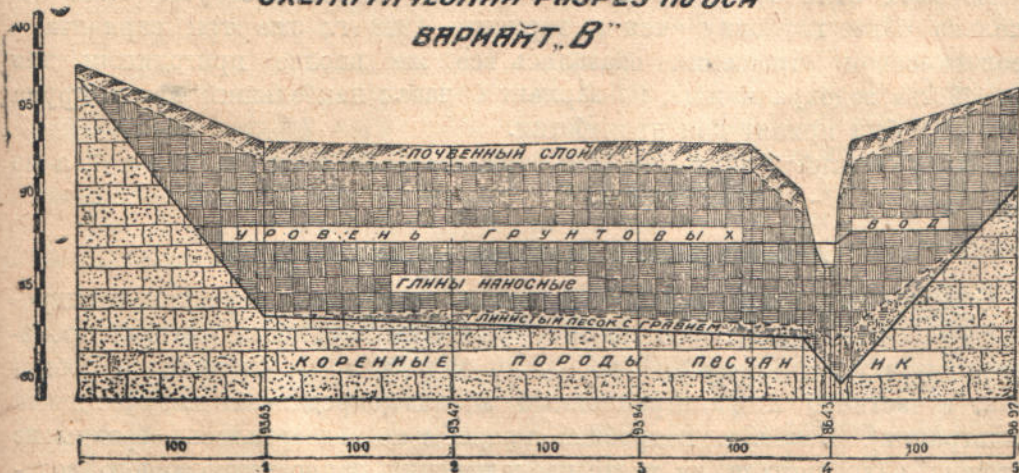 СХЕМАТИЧЕСКИЙ РАЗРЕЗ ПО ОСИ
ВАРИАНТ „В"
100
95
90
85
80
ПОЧВЕННЫЙ СЛОЙ
УРОВЕНЬ ГРУНТОВЫХ ВОД
ГЛИНЫ НАНОСНЫЕ
ГЛИНИСТЫЙ ПЕСОК С ГРАВИЕМ
КОРЕННЫЕ ПОРОДЫ ПЕСЧАНИК
93.63 93.47 93.84 86.43
100 100 100 100 100
1 2 3 4 5